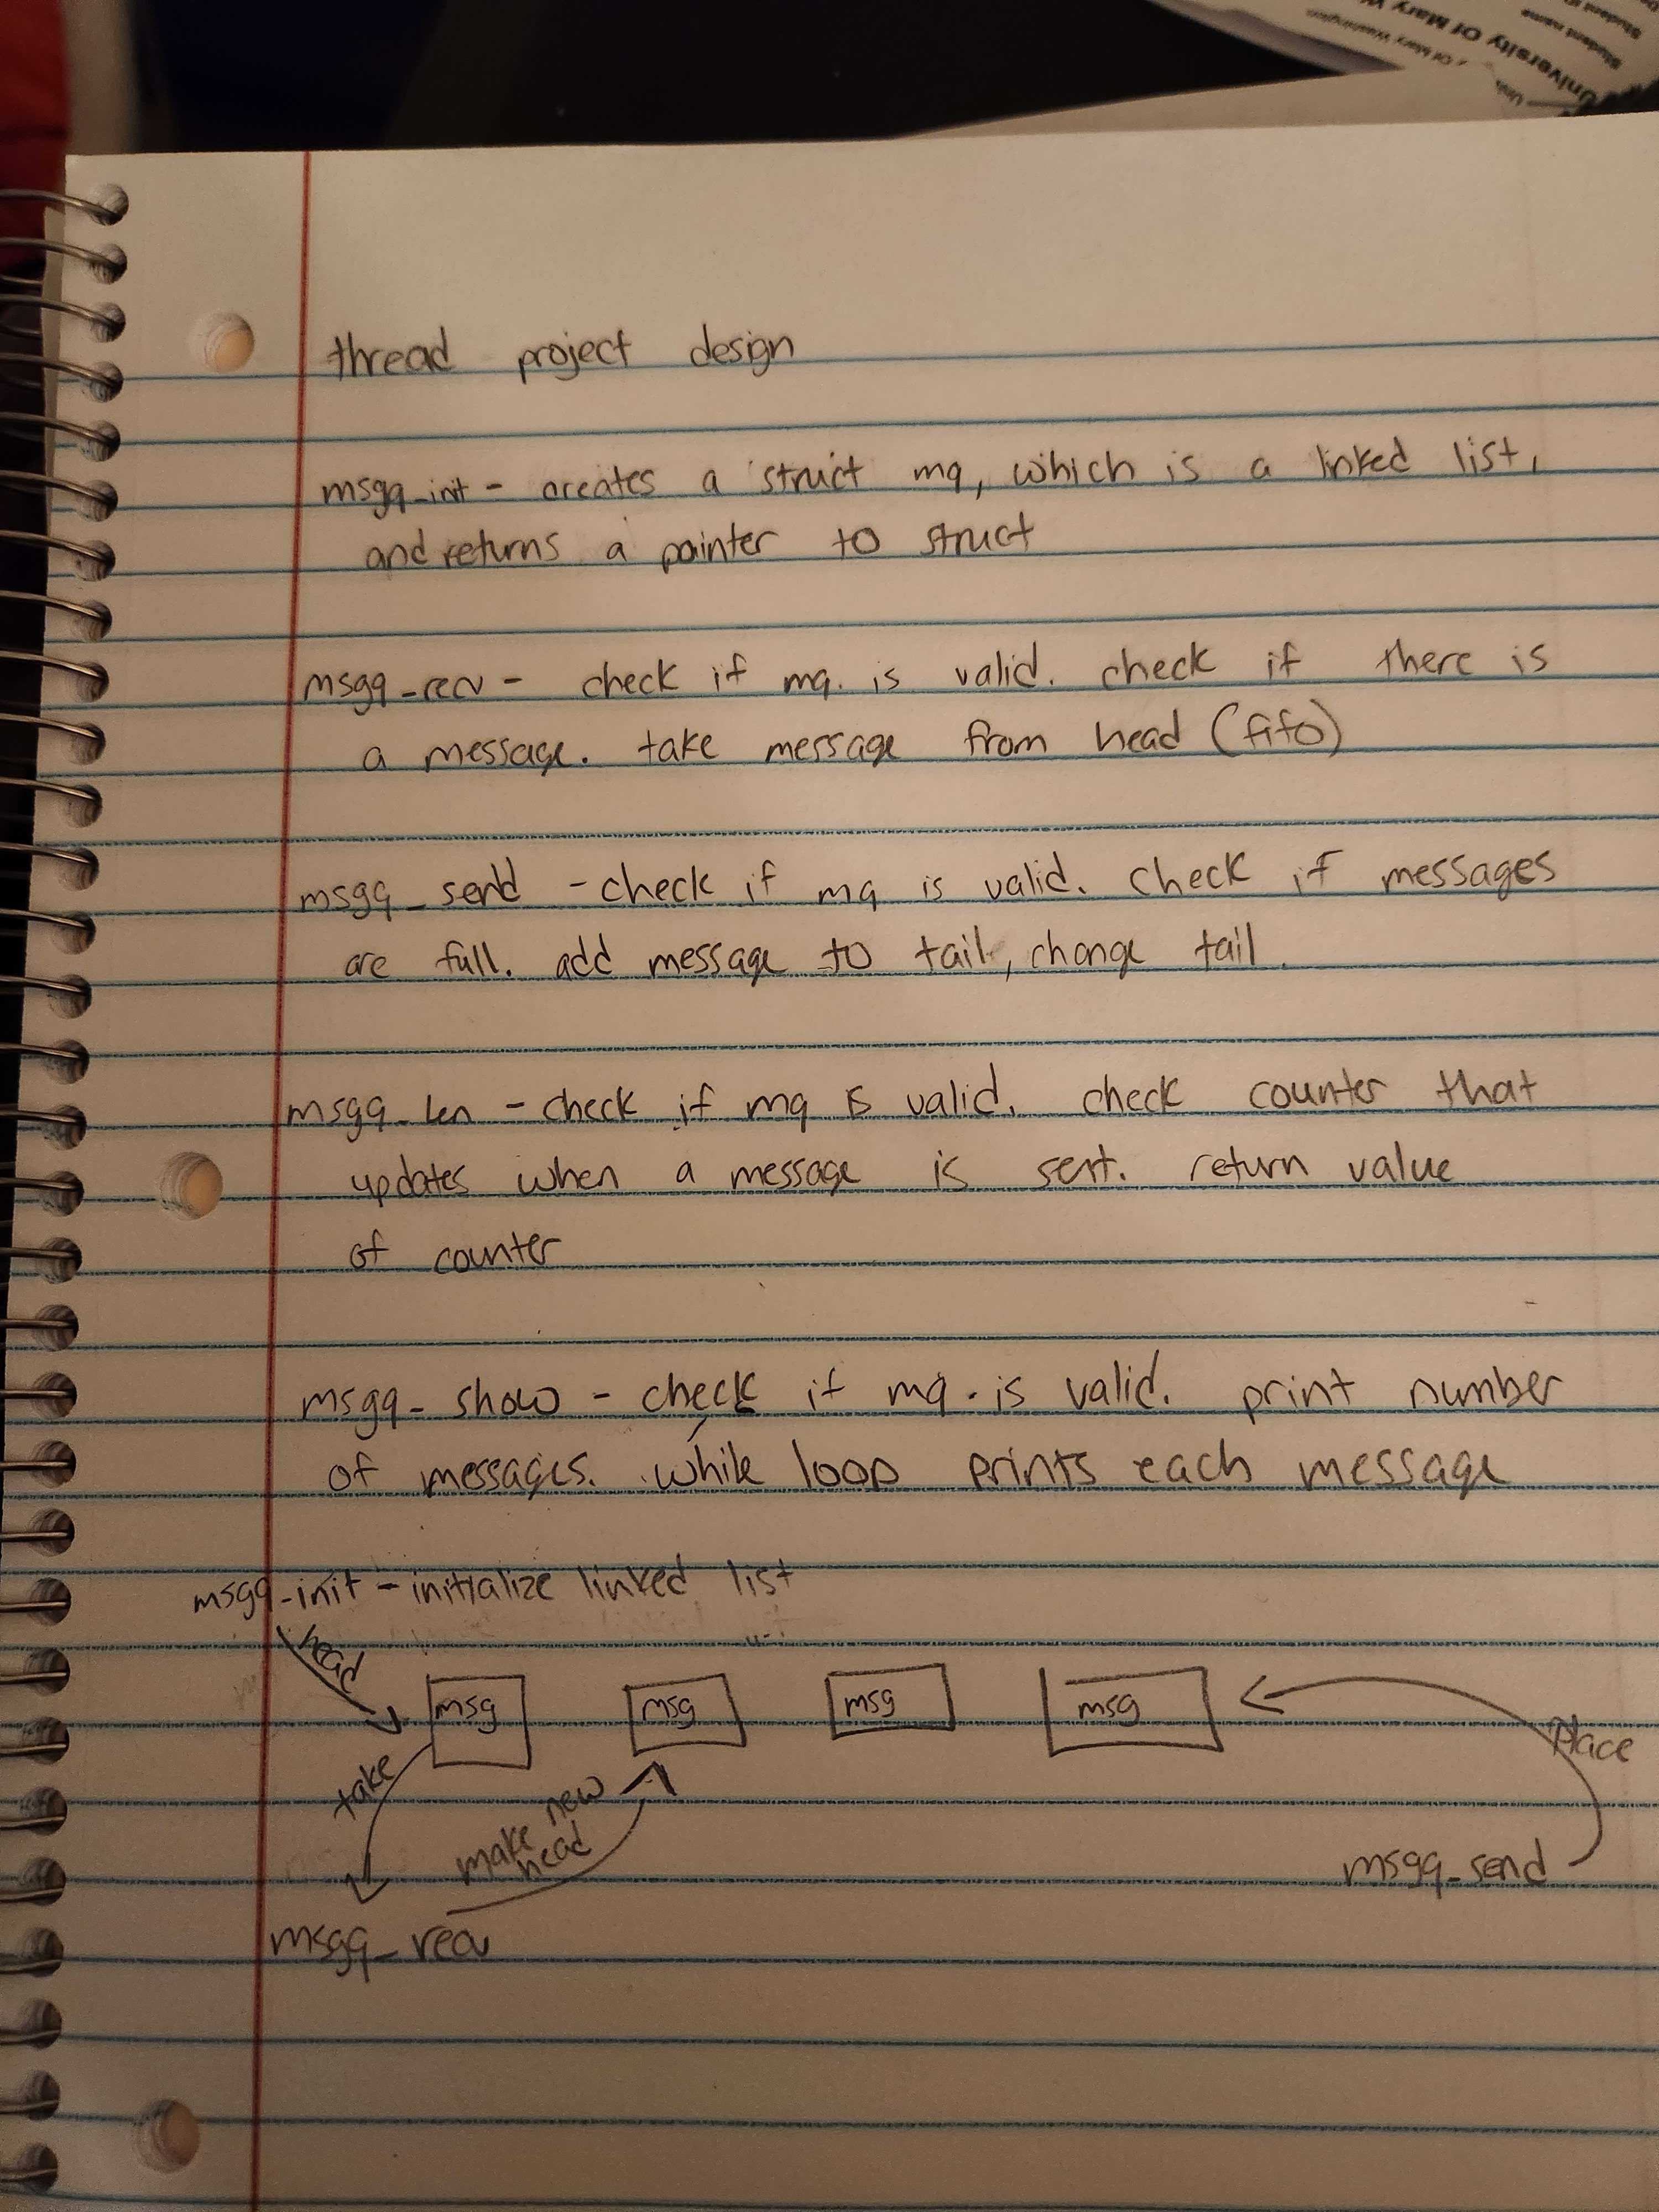 University Of Mary W
Of Mary Washington
Student name
Student
Univ
thread project design
msgq_init - creates a struct mq, which is a linked list,
and returns a pointer to struct
msgq_recv - check if mq. is valid. check if there is
a message. take message from head (fifo)
msgq_send - check if mq is valid. check if messages
are full. add message to tail, change tail.
msgq_len - check if mq is valid. check counter that
updates when a message is sent. return value
of counter
msgq_show - check if mq. is valid. print number
of messages. while loop prints each message
msgq_init - initialize linked list
head
msg msg msg msg
Place
take
make new
head
msgq_send
msgq_recv